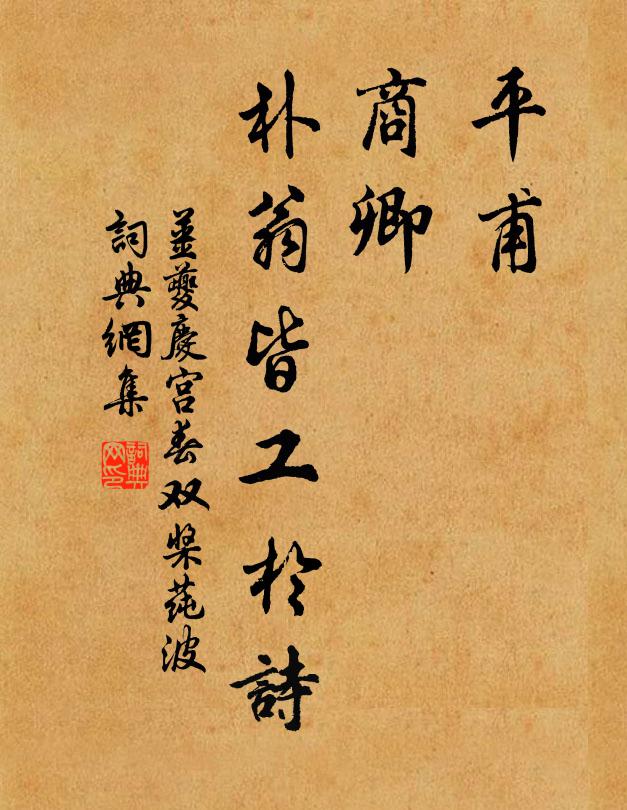 平甫
商卿
朴翁皆工於詩
姜夔慶宮春双桨莼波
詞典網集
詞典網印